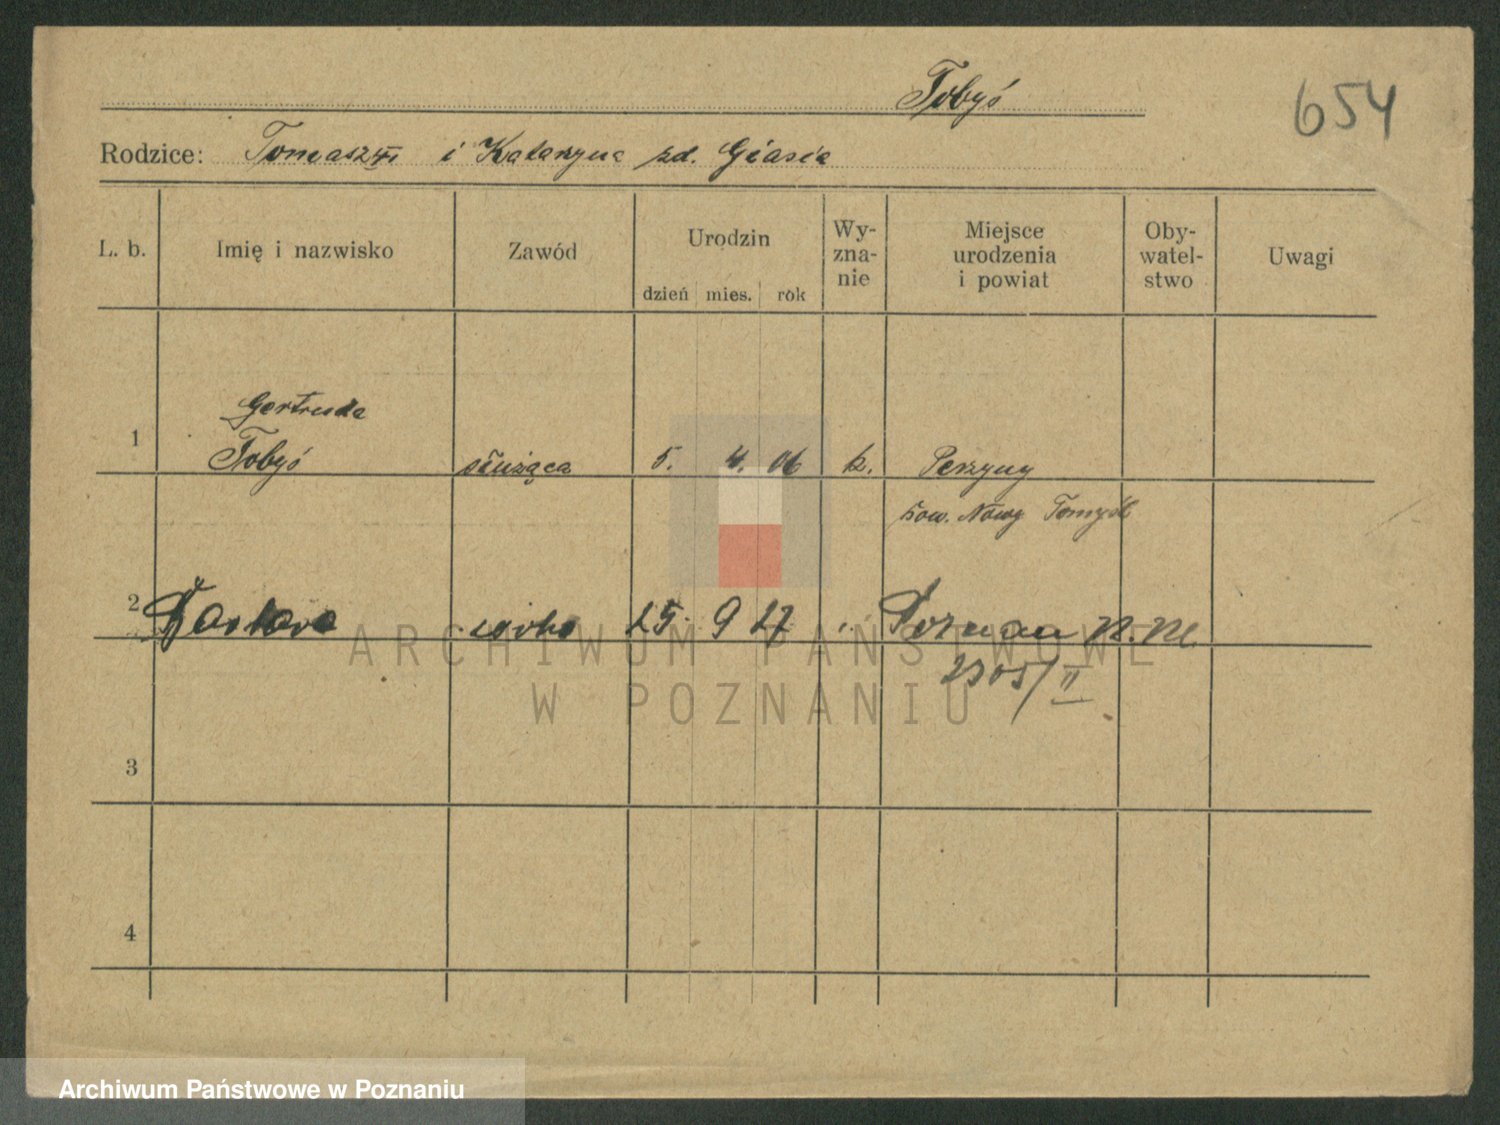 Tobyś
654
Rodzice: Tomasz i Katarzyna zd. Giasia
L. b. Imię i nazwisko Zawód Urodzin dzień mies. rok Wy-zna-nie Miejsce urodzenia i powiat Oby-watel-stwo Uwagi
Gertruda
1 Tobyś służąca 5. 4. 06 k. Perzyny
pow. Nowy Tomyśl
2 Barbara córka 25. 9 27 Poznan
2305/II
3
4
ARCHIWUM PAŃSTWOWE
W POZNANIU
Archiwum Państwowe w Poznaniu